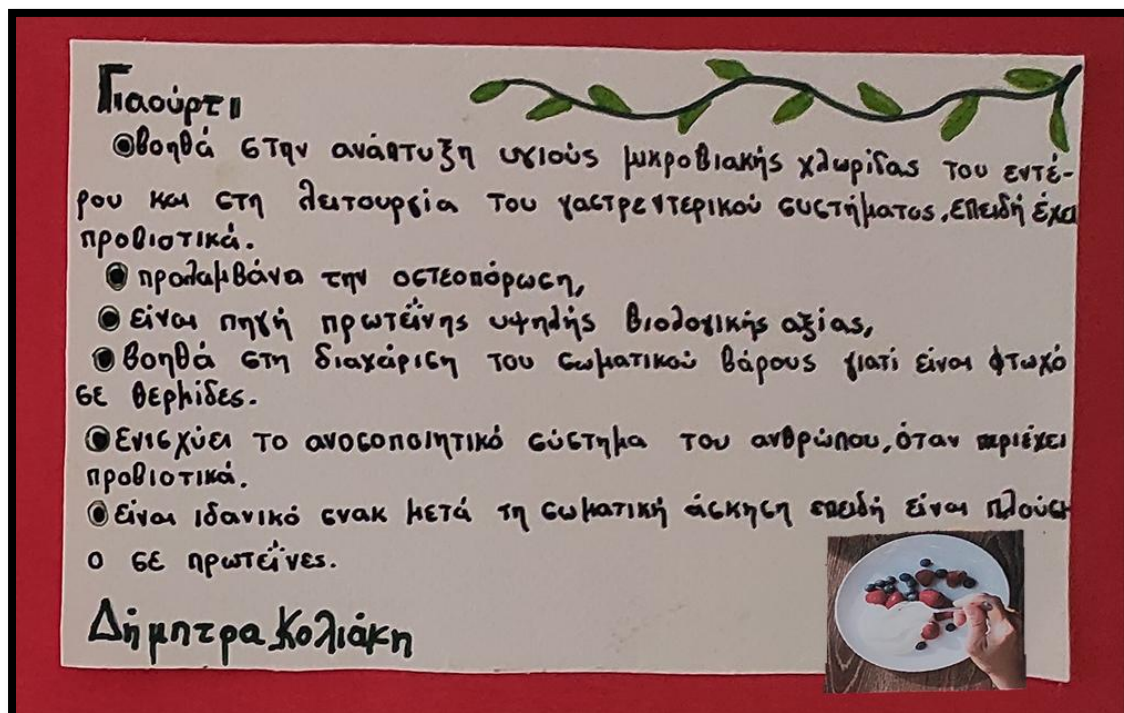 Γιαούρτι
●βοηθά στην ανάπτυξη υγιούς μικροβιακής χλωρίδας του εντέ-
ρου και στη λειτουργία του γαστρεντερικού συστήματος, επειδή έχει
προβιοτικά.
● προλαμβάνει την οστεοπόρωση,
● είναι πηγή πρωτεΐνης υψηλής βιολογικής αξίας,
● βοηθά στη διαχείριση του σωματικού βάρους γιατί είναι φτωχό
σε θερμίδες.
● Ενισχύει το ανοσοποιητικό σύστημα του ανθρώπου, όταν περιέχει
προβιοτικά.
● είναι ιδανικό σνακ μετά τη σωματική άσκηση επειδή είναι πλούσι
ο σε πρωτεΐνες.
Δήμητρα Κολιάκη